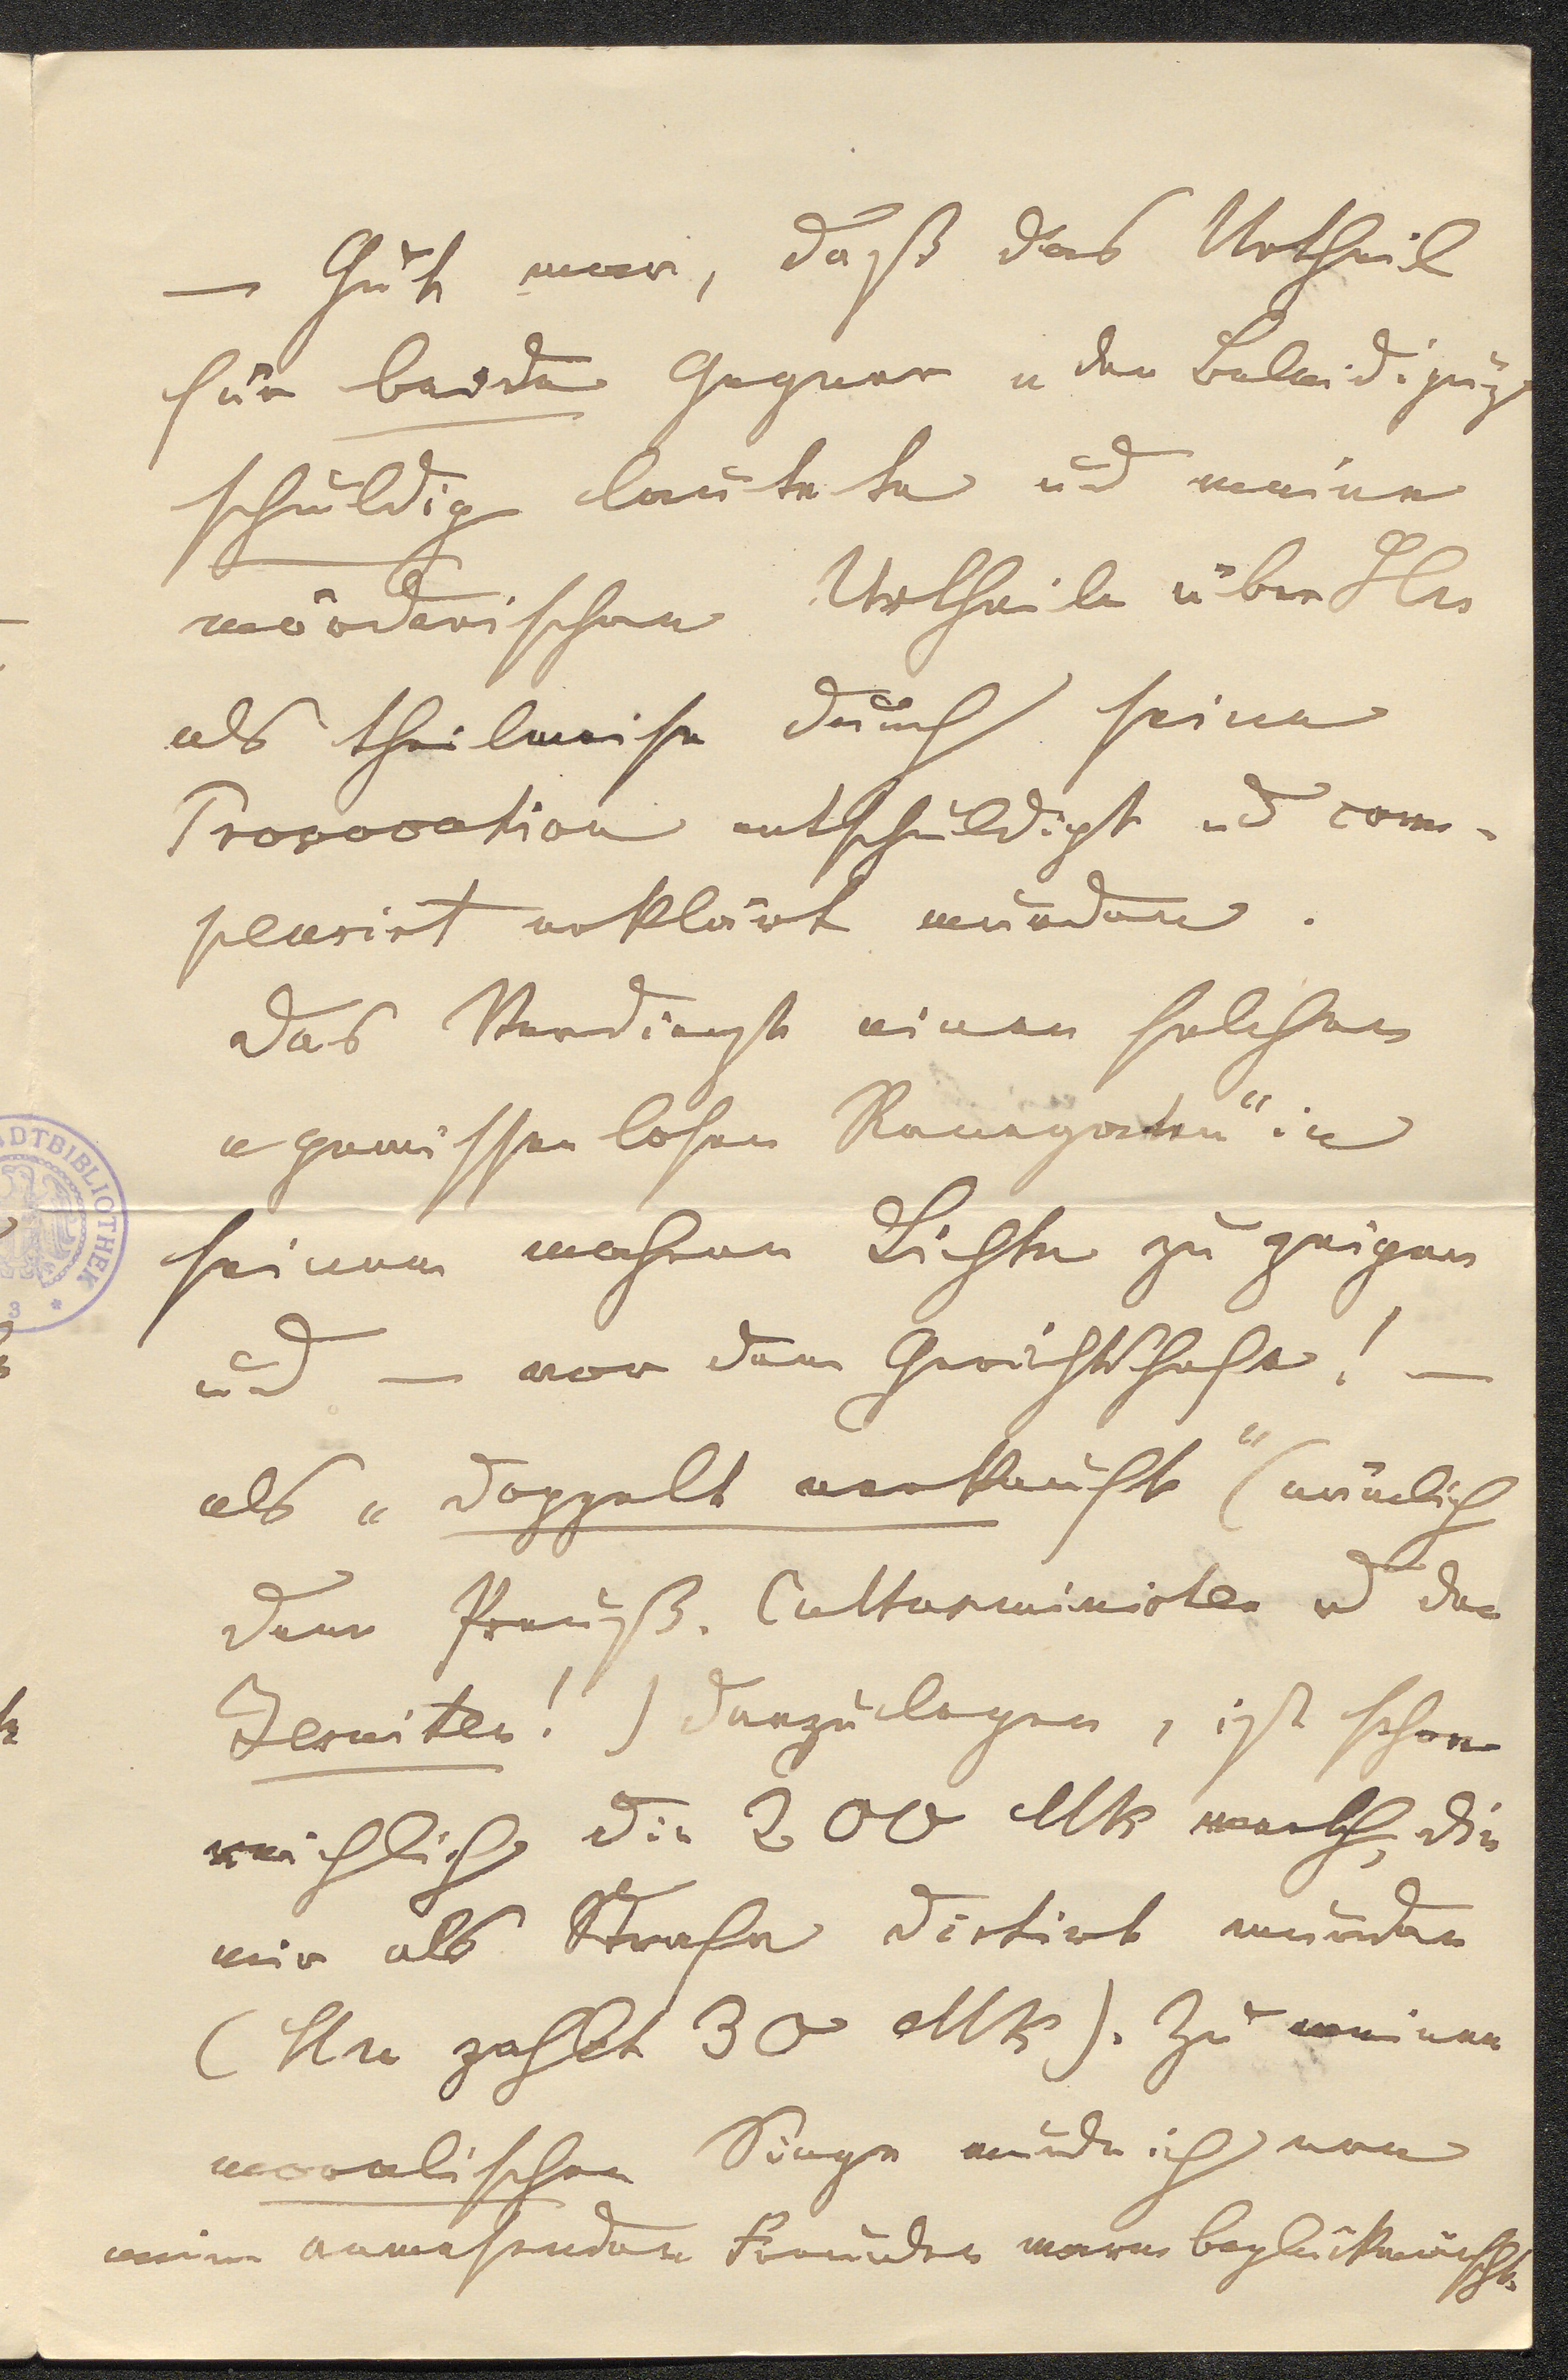 — Gut war, daß das Urtheil
für beide Gegner „der Beleidigung
schuldig lautete und meine
mörderischen Urtheile über Hn
als theilweise durch seine
Provocation entschuldigt ud com-
pensirt erklärt wurden.
Das Verdienst einen solchen
„gewissenlosen Renegaten“ in
seinem wahren Lichte zu zeigen
und — vor dem Gerichtshofe! —
als „doppelt verkauft“ (nämlich
dem Preuß. Cultusminister ud den
Jesuiten!) darzulegen, ist schon
reichlich die 200 Mk werth, die
mir als Strafe dictirt wurden
(Hn zahlt 30 Mk). Zu meinem
moralischen Siege wurde ich von
meinen anwesenden Freunden warm beglückwünscht.
STADTBIBLIOTHEK
3 *